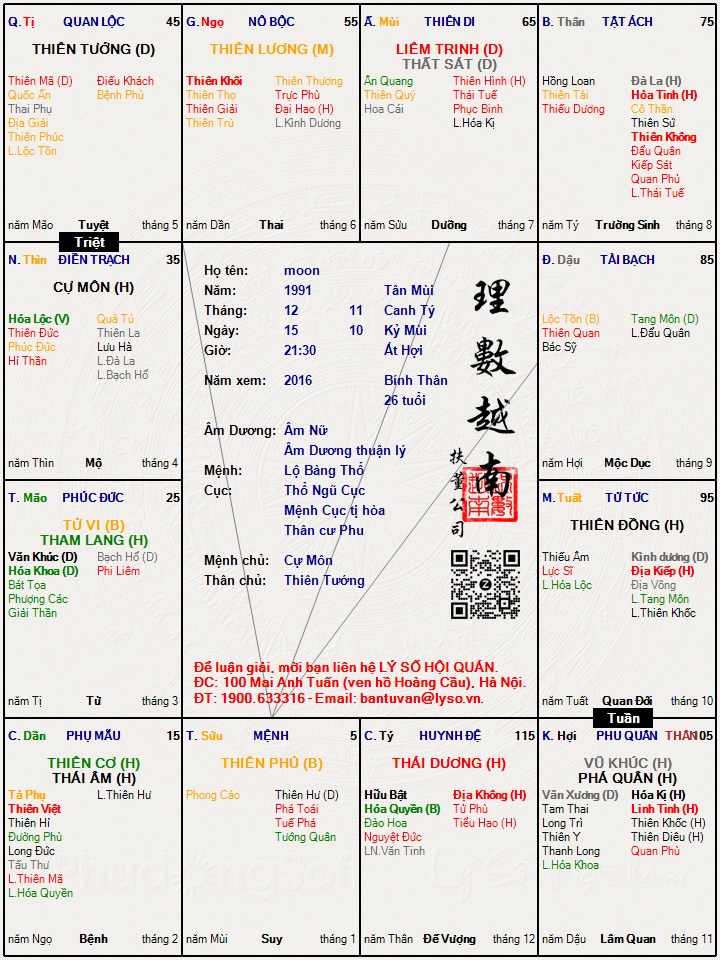 Q. Tị QUAN LỘC 45
THIÊN TƯỚNG (D)
Thiên Mã (D) Điếu Khách
Quốc Ấn Bệnh Phù
Thai Phụ
Địa Giải
Thiên Phúc
L.Lộc Tồn
năm Mão Tuyệt tháng 5
G. Ngọ NÔ BỘC 55
THIÊN LƯƠNG (M)
Thiên Khôi Thiên Thương
Thiên Thọ Trực Phù
Thiên Giải Đại Hao (H)
Thiên Trù L.Kình Dương
năm Dần Thai tháng 6
Ấ. Mùi THIÊN DI 65
LIÊM TRINH (D)
THẤT SÁT (D)
Ân Quang Thiên Hình (H)
Thiên Quý Thái Tuế
Hoa Cái Phục Binh
L.Hóa Kị
năm Sửu Dưỡng tháng 7
B. Thân TẬT ÁCH 75
Hồng Loan Đà La (H)
Thiên Tài Hỏa Tinh (H)
Thiếu Dương Cô Thần
Thiên Sứ
Thiên Không
Đẩu Quân
Kiếp Sát
Quan Phủ
L.Thái Tuế
năm Tý Trường Sinh tháng 8
Triệt
N. Thìn ĐIỀN TRẠCH 35
CỰ MÔN (H)
Hóa Lộc (V) Quả Tú
Thiên Đức Thiên La
Phúc Đức Lưu Hà
Hỉ Thần L.Đà La
L.Bạch Hổ
năm Thìn Mộ tháng 4
Họ tên: moon
Năm: 1991 Tân Mùi
Tháng: 12 11 Canh Tý
Ngày: 15 10 Kỷ Mùi
Giờ: 21:30 Ất Hợi
Năm xem: 2016 Bính Thân
26 tuổi
Âm Dương: Âm Nữ
Âm Dương thuận lý
Mệnh: Lộ Bàng Thổ
Cục: Thổ Ngũ Cục
Mệnh Cục tị hòa
Thân cư Phu
Mệnh chủ: Cự Môn
Thân chủ: Thiên Tướng
理數越南
扶董公司
Để luận giải, mời bạn liên hệ LÝ SỐ HỘI QUÁN.
ĐC: 100 Mai Anh Tuấn (ven hồ Hoàng Cầu), Hà Nội.
ĐT: 1900.633316 - Email: bantuvan@lyso.vn.
Đ. Dậu TÀI BẠCH 85
Lộc Tồn (B) Tang Môn (D)
Thiên Quan L.Đẩu Quân
Bác Sỹ
năm Hợi Mộc Dục tháng 9
T. Mão PHÚC ĐỨC 25
TỬ VI (B)
THAM LANG (H)
Văn Khúc (D) Bạch Hổ (D)
Hóa Khoa (D) Phi Liêm
Bát Tọa
Phượng Các
Giải Thần
năm Tị Tử tháng 3
M. Tuất TỬ TỨC 95
THIÊN ĐỒNG (H)
Thiếu Âm Kình dương (D)
Lực Sĩ Địa Kiếp (H)
L.Hóa Lộc Địa Võng
L.Tang Môn
L.Thiên Khốc
năm Tuất Quan Đới tháng 10
Tuần
C. Dần PHỤ MẪU 15
THIÊN CƠ (H)
THÁI ÂM (H)
Tả Phụ L.Thiên Hư
Thiên Việt
Thiên Hỉ
Đường Phù
Long Đức
Tấu Thư
L.Thiên Mã
L.Hóa Quyền
năm Ngọ Bệnh tháng 2
T. Sửu MỆNH 5
THIÊN PHỦ (B)
Phong Cáo Thiên Hư (D)
Phá Toái
Tuế Phá
Tướng Quân
năm Mùi Suy tháng 1
C. Tý HUYNH ĐỆ 115
THÁI DƯƠNG (H)
Hữu Bật Địa Không (H)
Hóa Quyền (B) Tử Phù
Đào Hoa Tiểu Hao (H)
Nguyệt Đức
LN.Văn Tinh
năm Thân Đế Vượng tháng 12
K. Hợi PHU QUÂN THÂN 105
VŨ KHÚC (H)
PHÁ QUÂN (H)
Văn Xương (D) Hóa Kị (H)
Tam Thai Linh Tinh (H)
Long Trì Thiên Khốc (H)
Thiên Y Thiên Diêu (H)
Thanh Long Quan Phù
L.Hóa Khoa
năm Dậu Lâm Quan tháng 11